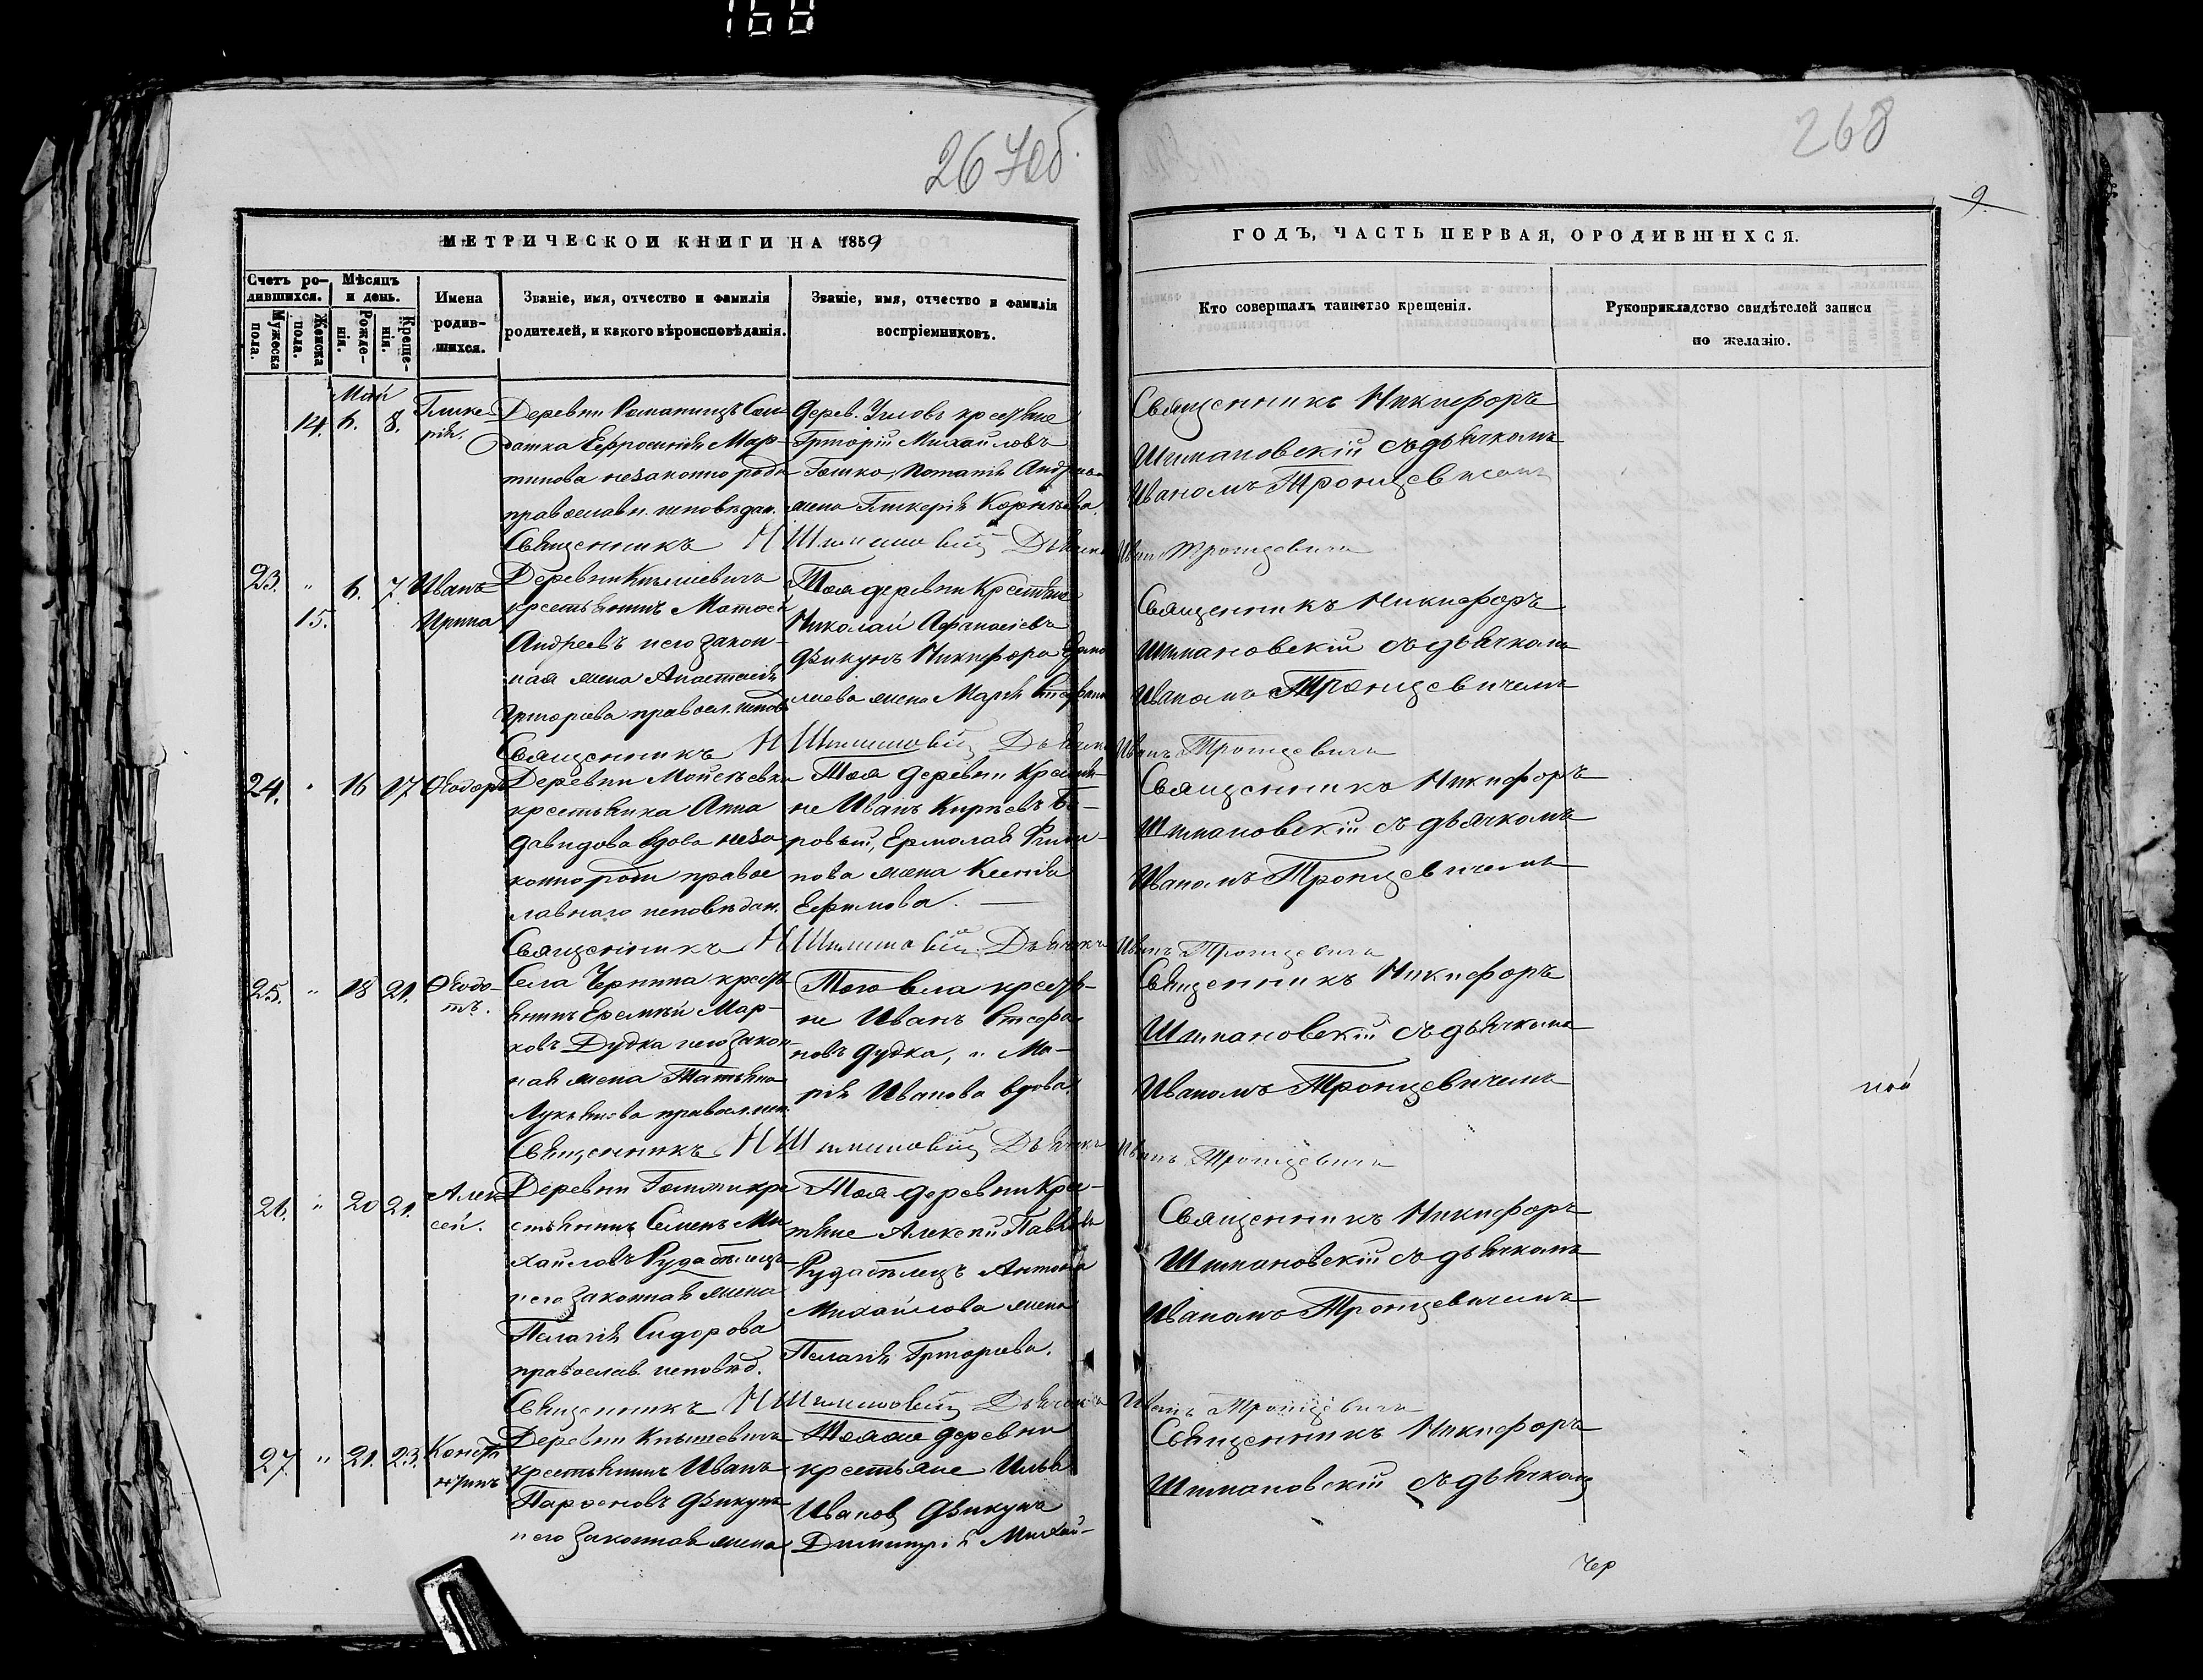 168
267об.
268
9.
МЕТРИЧЕСКОЙ КНИГИ НА 1859
ГОДЪ, ЧАСТЬ ПЕРВАЯ, ОРОДИВШИХСЯ.
Счетъ ро-
дившихся.
Мужеска
пола.
Женска
пола.
Мѣсяцъ
и день.
Рожде-
нія.
Креще-
нія.
Имена
родив-
шихся.
Званіе, имя, отчество и фамилія
родителей, и какого вѣроисповѣданія.
Званіе, имя, отчество и фамилія
воспріемниковъ.
Кто совершалъ таинство крещенія.
Рукоприкладство свидѣтелей записи
по желанію.
Май
14. 6. 8.
Глике-
рія.
Деревни Романищъ Сол-
датка Ефросинія Мар-
тинова незаконно роди
православн. исповѣдан.
Дерев. Угловъ крестьяне
Григорій Михайловъ
Гошко,
жена Гликерія Корнѣева.
Священникъ Никифоръ
Шимановскій съ дьячкомъ
Иваномъ Троицевичемъ
Священникъ Н Шимановскій Дьячекъ Иванъ Троицевичъ
23. " 6. 7. Иванъ
15. Ирина
Деревни Кнышевичъ
крестьянинъ Матөей
Андреевъ и его закон-
ная жена Анастасія
Григорьева правосл. испов.
Тоя деревни Крестьяне
Николай Афанасіевъ
Дзикунъ Никифора Ермо
лаева жена Марія Стефан
Священникъ Никифоръ
Шимановскій съ дьячкомъ
Иваномъ Троицевичемъ
Священникъ Н Шимановскій Дьячекъ Иванъ Троицевичъ
24. " 16 17 Ѳеодоръ
Деревни Мойсѣевки
крестьянка Анна
Давидова вдова неза
конно роди правос
лавнаго исповѣдан.
Тоя деревни Крестья-
не Иванъ Кирѣевъ Бо-
ровый, Ермолая Фили-
пова жена Ксенія
Ефимова.
Священникъ Никифоръ
Шимановскій съ дьячкомъ
Иваномъ Троицевичемъ
Священникъ Н Шимановскій Дьячекъ Иванъ Троицевичъ
25. " 18 21. Ѳеодо-
тъ.
Села Чернина кресть
янинъ Еремѣй Мар-
ковъ Дудка и его закон
ная жена Татьяна
Лукьянова правосл. исп.
Того села крестья-
не Иванъ Стефа
новъ Дудка, и Ма-
рія Иванова вдова.
Священникъ Никифоръ
Шимановскій съ дьячкомъ
Иваномъ Троицевичемъ
Священникъ Н Шимановскій Дьячекъ Иванъ Троицевичъ
26. " 20 21. Алек
сей.
кре
стьянинъ Семенъ Ми
хайловъ Рудабѣлецъ
и его законная жена
Пелагія Сидорова
православ. исповѣд.
Тоя деревни Крес-
тьяне Алексѣй Павловъ
Рудабѣлецъ Антона
Михайлова жена
Пелагія Григорьева.
Священникъ Никифоръ
Шимановскій съ дьячкомъ
Иваномъ Троицевичемъ
Священникъ Н Шимановскій Дьячекъ Иванъ Троицевичъ
27. " 21. 23. Конста
нтинъ
Деревни Кнышевичъ
крестьянинъ Иванъ
Парфеновъ Дзикунъ
и его законная жена
Тояже деревни
крестьяне Илья
Иванов Дзикунъ
Димитрія Михай-
Священникъ Никифоръ
Шимановскій съ дьячком
Чер